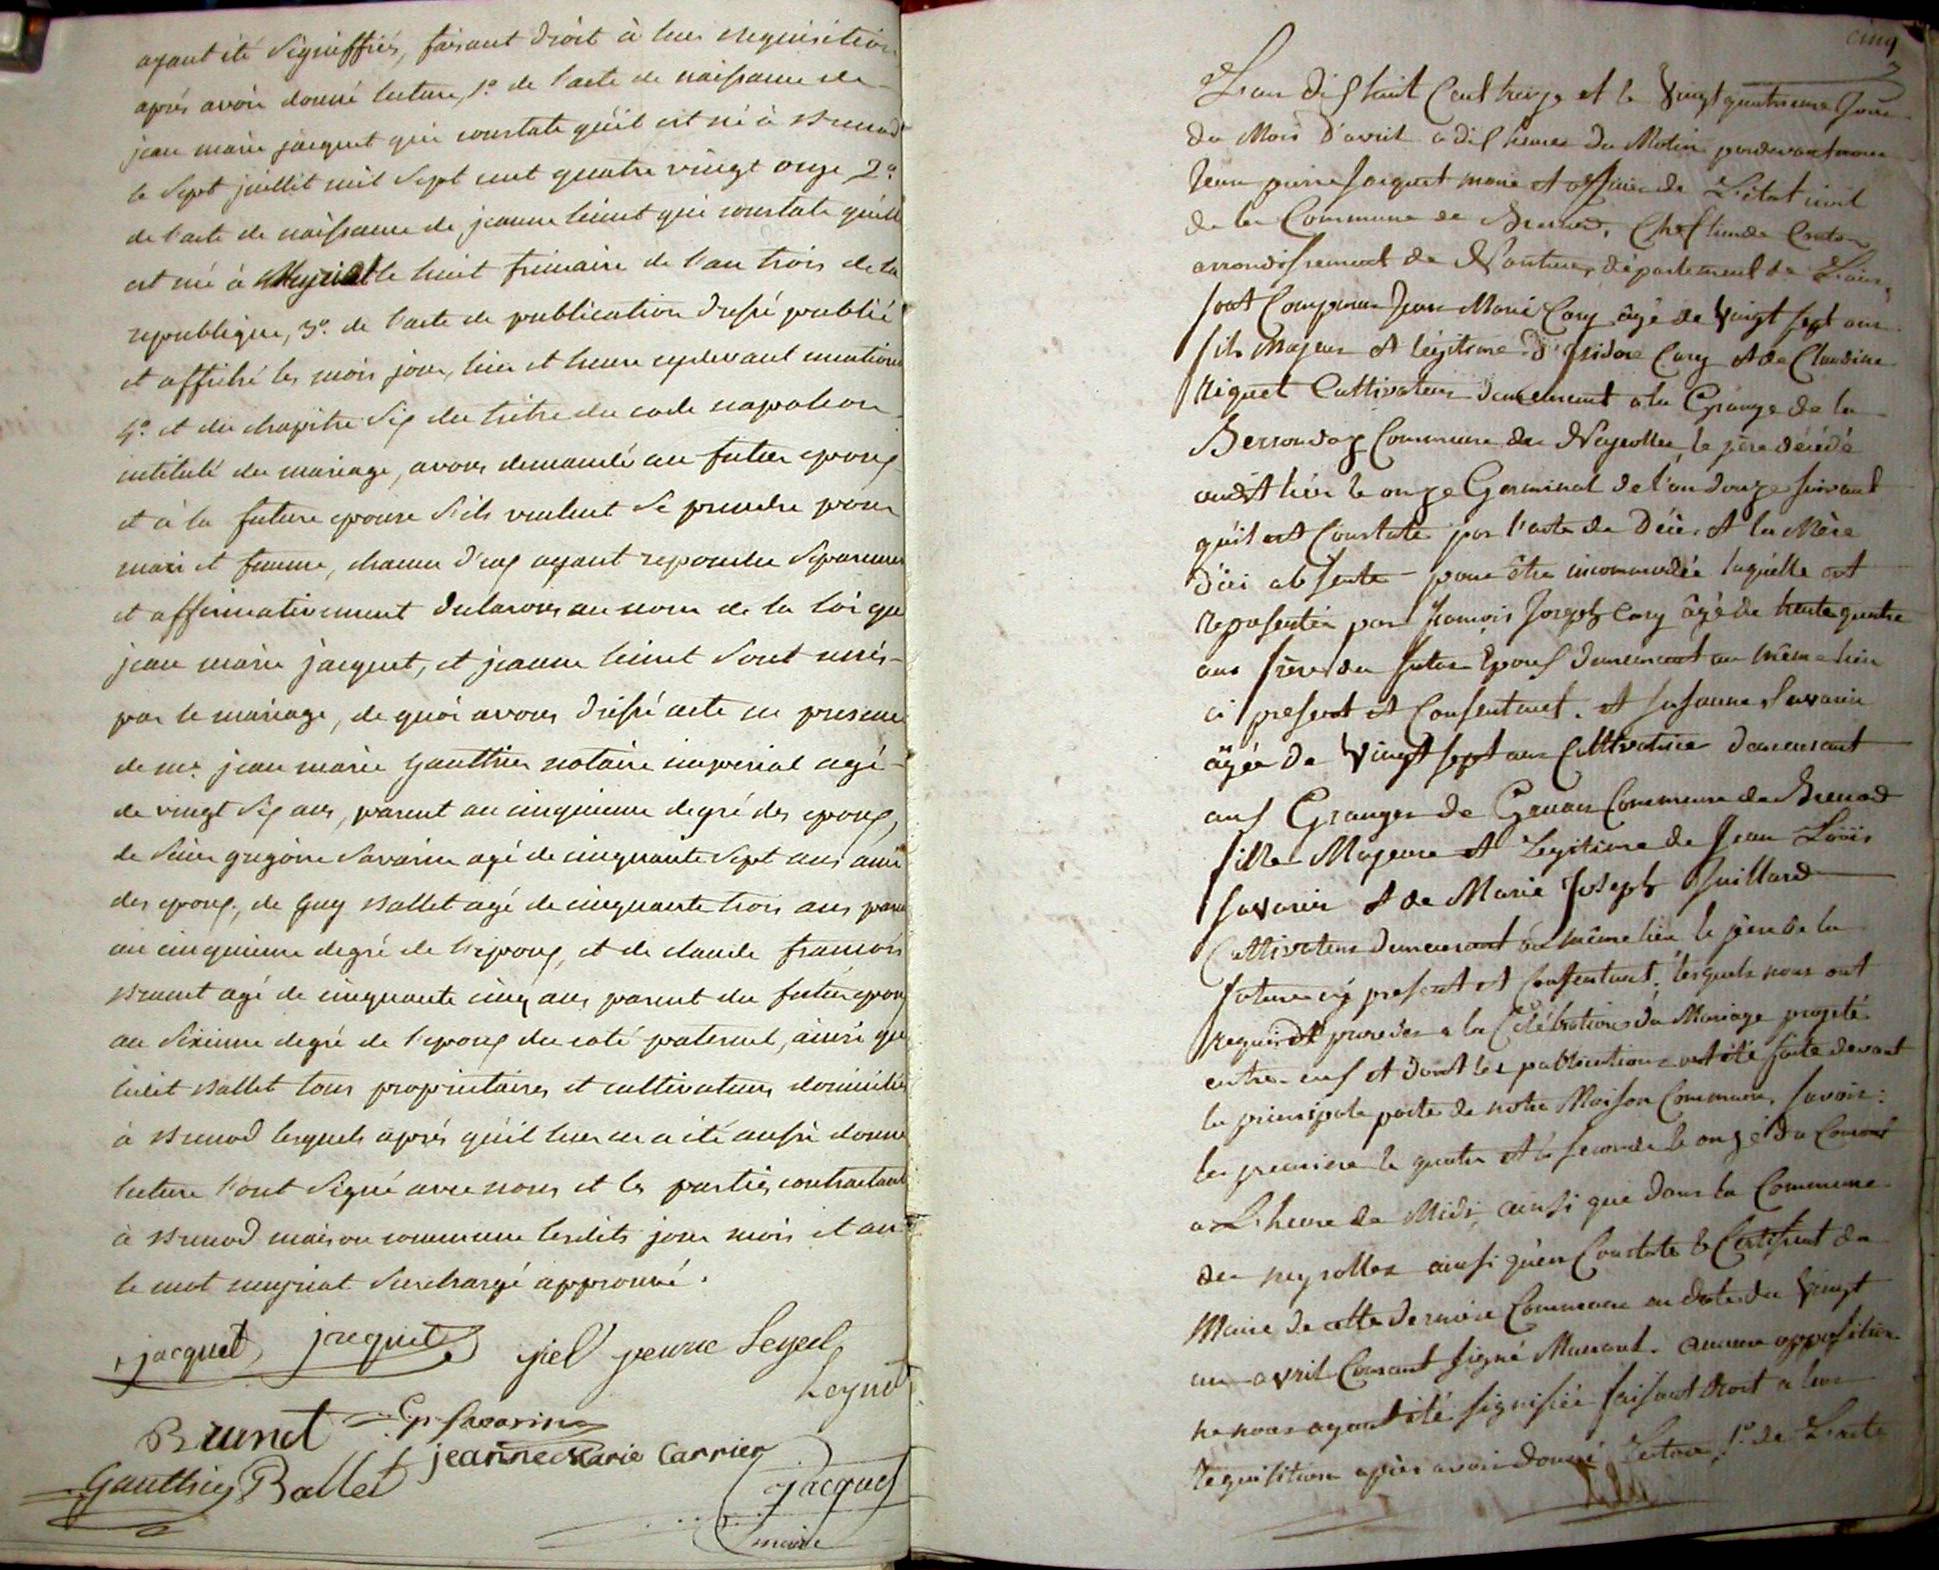 ayant été signiffiés, faisant droit à leur requisition
aprés avoir donné lecture, 1.º de l'acte de naissance de
jean marie jacquet qui constate qu'il est né à Brenod
le sept juillet mil sept cent quatre vingt onze 2.º
de l'acte de naissance de jeanne leinet qui constate qu'elle
est né à Meyriat le huit frimaire de l'an trois de la
republique, 3.º de l'acte de publication dressé publié
et affiché les mois jour, lieu et heure cydevant mentionné
4.º et du chapitre six du titre du code napoleon
intitulé du mariage, avons demandé au futur epoux
et à la future epouse s'ils veulent se prendre pour
mari et femme, chacun d'eux ayant repondu séparement
et affirmativement declarons au nom de la loi que
jean marie jacquet, et jeanne leinet sont unis
par le mariage, de quoi avons dressé acte en presence
de me. jean marie gauthier notaire imperial agé
de vingt six ans, parent au cinquieme degré des epoux,
de sieur gregoire savarin agé de cinquante sept ans ami
des epoux, de guy Ballet agé de cinquante trois ans parent
au cinquieme degré de l'epoux, et de claude francois
Brunet agé de cinquante cinq ans parent du futur epoux
au sixieme degré de l'epoux du coté paternel, ainsi que
ledit Ballet tous proprietaires et cultivateurs domiciliés
à Brenod lesquels aprés qu'il leur en a été aussi donné
lecture l'ont signé avec nous et les parties contractant
à Brenod maison commune lesdits jour mois et an
le mot meyriat surchargé approuvé.
jacquet jacquet
Brunet Gr Savarin
jeanne Marie Carrier
Gauthier Ballet
Jacquet
maire
cinq
L'an dix huit Cent treize et le Vingt quatrieme Jour
du Mois d'avril a dix heures du Matin pardevant nous
Jean pierre Jacquet maire et officier de L'état civil
de la Commune de Brenod, Chef lieu de Canton
arrondissement de Nantua, département de L'ain,
sont Comparus Jean Marie Cary âgé de Vingt sept ans
fils Majeur et légitime d'Isidore Cary et de Claudine
Riquet Cultivateurs demeurant a la Grange de la
Commune des Neyrolles, le père décédé
audit lieu le onze Germinal de l'an douze suivant
qu'il est Constaté par l'acte de Décès et la Mère
d'ici absente pour être incommodée laquelle est
representée par francois Joseph Cary âgé de trente quatre
ans frère du futur Epoux demeurant au même lieu
ci présent et Consentant. et Susanne Savarin
âgée de Vingt sept ans Cultivatrice demeurant
aux Granges de Commune de Brenod
fille Majeure et Legitime de Jean Loüis
Savarin et de Marie Joseph Juillard
Cultivateurs demeurant au même lieu le père de la
future cy présent et Consentant. lesquels nous ont
requis de proceder a la Célébration du Mariage projeté
entre-eux et dont les publications ont été faite devant
la principale porte de notre Maison Commune, Savoir:
la premiere le quatre et la seconde le onze du Courant
a L'heure de Midi, ainsi que dans la Commune
des neyrolles ainsi qu'en Constate le Certificat du
Maire de cette derniere Commune en date du Vingt
un avril Courant signé Mussant. aucune opposition
ne nous ayant été signifiée faisant droit a leur
requisition après avoir donné Lecture 1.º de L'acte